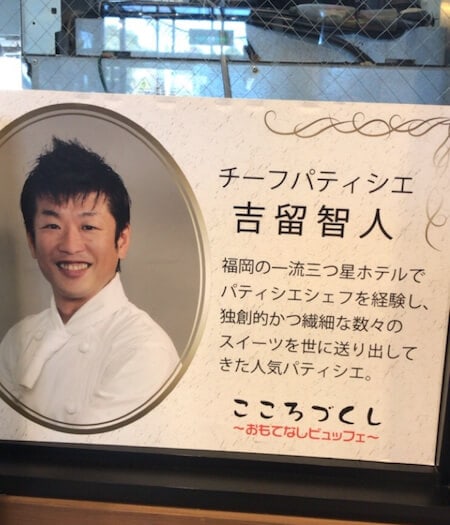 チーフパティシエ
吉留智人
福岡の一流三つ星ホテルで
パティシエシェフを経験し、
独創的かつ繊細な数々の
スイーツを世に送り出して
きた人気パティシエ。
こころづくし
〜おもてなしビュッフェ〜